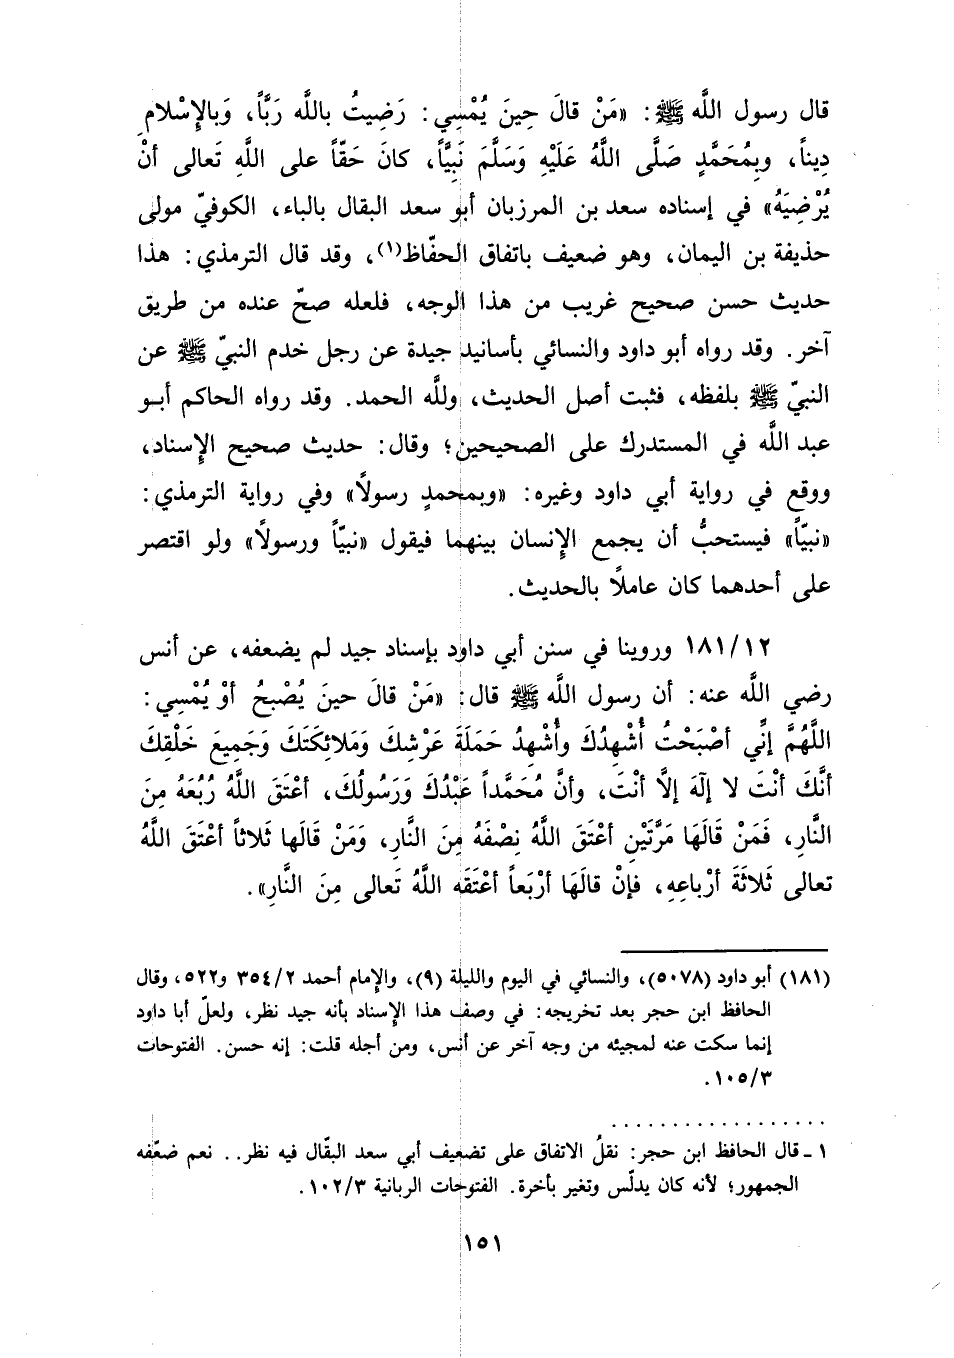 قال رسول اللَّه ﷺ: «مَنْ قالَ حِينَ يُمْسِي: رَضِيتُ باللَّه رَبَّاً، وَبالإِسْلامِ
دِيناً، وبِمُحَمَّدٍ صَلَّى اللَّهُ عَلَيْهِ وَسَلَّمَ نَبِيَّاً، كانَ حَقّاً على اللَّهِ تَعالى أنْ
يُرْضِيَهُ» في إسناده سعد بن المرزبان أبو سعد البقال بالباء، الكوفيّ مولى
حذيفة بن اليمان، وهو ضعيف باتفاق الحفّاظ(١)، وقد قال الترمذي: هذا
حديث حسن صحيح غريب من هذا الوجه، فلعله صحّ عنده من طريق
آخر. وقد رواه أبو داود والنسائي بأسانيد جيدة عن رجل خدم النبيّ ﷺ عن
النبيّ ﷺ بلفظه، فثبت أصل الحديث، وللَّه الحمد. وقد رواه الحاكم أبو
عبد اللَّه في المستدرك على الصحيحين؛ وقال: حديث صحيح الإِسناد،
ووقع في رواية أبي داود وغيره: «وبمحمدٍ رسولاً» وفي رواية الترمذي:
«نبيّاً» فيستحبُّ أن يجمع الإِنسان بينهما فيقول «نبيّاً ورسولاً» ولو اقتصر
على أحدهما كان عاملاً بالحديث.
١٨١/١٢ وروينا في سنن أبي داود بإسناد جيد لم يضعفه، عن أنس
رضي اللَّه عنه: أن رسول اللَّه ﷺ قال: «مَنْ قالَ حينَ يُصْبحُ أوْ يُمْسِي:
اللَّهُمَّ إنِّي أصْبَحْتُ أُشْهِدُكَ وأُشْهِدُ حَمَلَةَ عَرْشِكَ وَمَلائِكَتَكَ وَجَمِيعَ خَلْقِكَ
أنَّكَ أنْتَ لا إلَهَ إلَّا أنْتَ، وأنَّ مُحَمَّداً عَبْدُكَ وَرَسُولُكَ، أعْتَقَ اللَّهُ رُبُعَهُ مِنَ
النَّارِ، فَمَنْ قَالَهَا مَرَّتَيْنِ أعْتَقَ اللَّهُ نِصْفَهُ مِنَ النَّارِ، وَمَنْ قَالَها ثَلاثاً أعْتَقَ اللَّهُ
تعالى ثَلاثَةَ أرْباعِهِ، فإنْ قالَهَا أرْبَعاً أعْتَقَه اللَّهُ تَعالى مِنَ النَّارِ».
(١٨١) أبو داود (٥٠٧٨)، والنسائي في اليوم والليلة (٩)، والإمام أحمد ٣٥٤/٢ و٥٢٢، وقال
الحافظ ابن حجر بعد تخريجه: في وصف هذا الإِسناد بأنه جيد نظر، ولعلّ أبا داود
إنما سكت عنه لمجيئه من وجه آخر عن أنس، ومن أجله قلت: إنه حسن. الفتوحات
١٠٥/٣.
١ - قال الحافظ ابن حجر: نقلُ الاتفاق على تضعيف أبي سعد البقّال فيه نظر.. نعم ضعّفه
الجمهور؛ لأنه كان يدلّس وتغير بأخرة. الفتوحات الربانية ١٠٢/٣.
١٥١